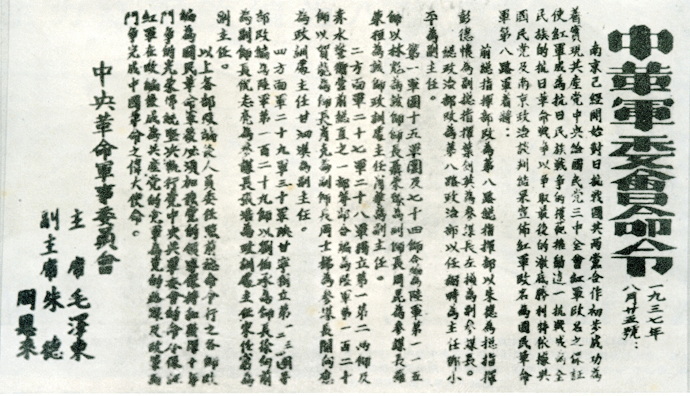 中革軍委會命令
一九三七年
八月廿五號：
南京己經開始對日抗戰國共兩黨合作初步成功為
着實現共產党中央給國民党三中全會紅軍改名之保証
使紅軍成為抗日民族戰爭的模範推動這一抗戰成為全
民族的抗日革命戰爭以爭取最後的澈底勝利特依據與
國民党及南京政治談判結果宣佈紅軍改名為國民革命
軍第八路軍着將:
前總指揮部改為第八路總指揮部以朱德為總指揮
彭德懷為副總指揮葉劍英為參謀長左權為副參謀長。
總政治部改為第八路政治部以任弼時為主任鄧小
平為副主任。
第一軍團十五軍團及七十四師合編為陸軍第一一五
師以林彪為該師師長聶榮臻為副師長周昆為參謀長羅
榮桓為該師政訓處主任蕭華為副主任。
二方面軍二十七軍二十八軍獨立第一第二兩師及
赤水警衛營前總直之一部等部合編為陸軍第一百二十
師以賀龍為師長蕭克為副師長周士梯為參謀長關向應
為政訓處主任甘泗淇為副主任。
四方面軍二十九軍三十軍陝甘寧獨立第一二三四團等
部改編為陸軍第一百二十九師以劉伯承為師長徐向前
為副師長倪志亮為參謀長張浩為政訓處主任宋任窮為
副主任。
以上各部改編後人員委任照前總命令行之各師改
編為國民革命軍後必須加強黨的領導保持和發揚十年
鬥爭的光榮傳統堅決執行党中央與軍委會的命令保証
紅軍在改編後成為共產党的党軍為党的路線及政策而
鬥爭完成中國革命之偉大使命。
中央革命軍事委員會
主席毛澤東
副主席朱德
周恩來